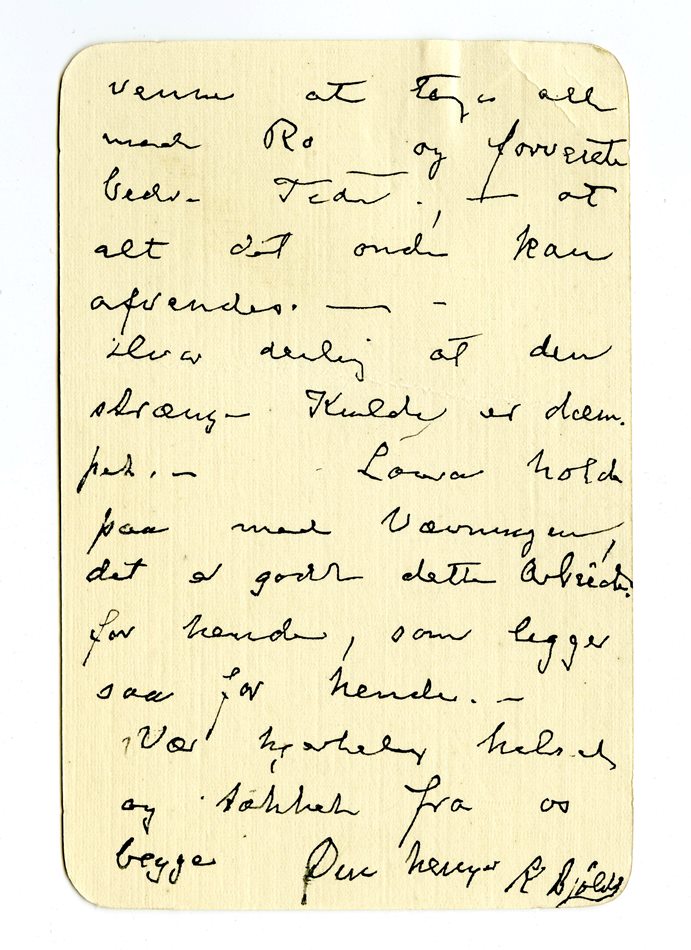 venne at tage alt
med Ro og forvente
bedre Tider, — at
alt det onde kan
afvendes. — -
Hvor deilig at den
strænge Kulde er dæm-
pet. — Laura holder
paa med Vævningen,
det er godt dette Arbeide
for hende, som legger
saa for hende. —
Vær hjertelig hilset
og takket fra os
begge Din hengivne K Bjölv